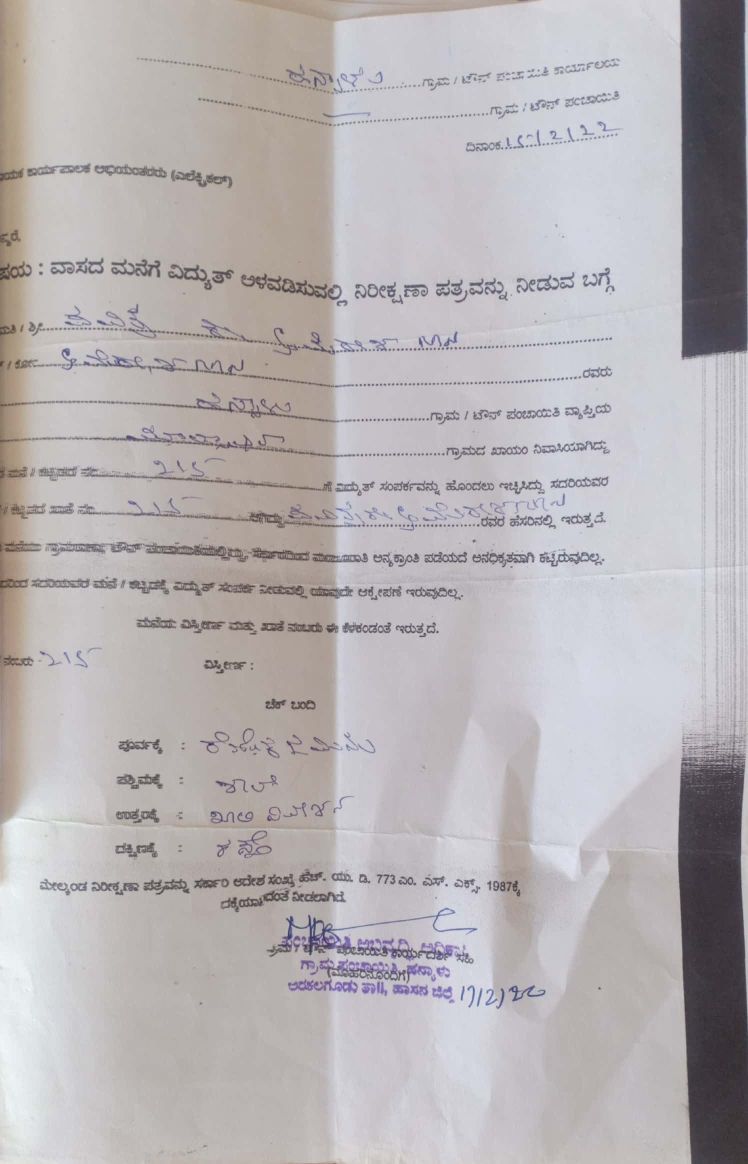 ಹನ್ಯಾಳು ಗ್ರಾಮ / ಟೌನ್ ಪಂಚಾಯಿತಿ ಕಾರ್ಯಾಲಯ
ಗ್ರಾಮ / ಟೌನ್ ಪಂಚಾಯಿತಿ
ದಿನಾಂಕ 15/2/22
ಯಕ ಕಾರ್ಯಪಾಲಕ ಅಭಿಯಂತರರು (ಎಲೆಕ್ಟ್ರಿಕಲ್)
ನ್ಯರೆ,
ಷಯ : ವಾಸದ ಮನೆಗೆ ವಿದ್ಯುತ್ ಅಳವಡಿಸುವಲ್ಲಿ ನಿರೀಕ್ಷಣಾ ಪತ್ರವನ್ನು ನೀಡುವ ಬಗ್ಗೆ
ಮತಿ / ಶ್ರೀ
/ ಕೋಂ ರವರು
ಹನ್ಯಾಳು ಗ್ರಾಮ / ಟೌನ್ ಪಂಚಾಯಿತಿ ವ್ಯಾಪ್ತಿಯ
ಗ್ರಾಮದ ಖಾಯಂ ನಿವಾಸಿಯಾಗಿದ್ದು
ಮನೆ / ಕಟ್ಟಡದ ನಂ. 215 ಗೆ ವಿದ್ಯುತ್ ಸಂಪರ್ಕವನ್ನು ಹೊಂದಲು ಇಚ್ಛಿಸಿದ್ದು ಸದರಿಯವರ
/ ಕಟ್ಟಡದ ಖಾತೆ ನಂ. 215 ಆಗಿದ್ದು ರವರ ಹೆಸರಿನಲ್ಲಿ ಇರುತ್ತದೆ.
ಮನೆಯು ಗ್ರಾಮಠಾಣಾ, ಟೌನ್ ಪಂಚಾಯಿತಿಯಲ್ಲಿದ್ದು, ಸರ್ಕಾರದಿಂದ ಮಂಜೂರಾತಿ ಅನ್ಯಕ್ರಾಂತಿ ಪಡೆಯದೆ ಅನಧಿಕೃತವಾಗಿ ಕಟ್ಟಿರುವುದಿಲ್ಲ.
ದರಿಂದ ಸದರಿಯವರ ಮನೆ / ಕಟ್ಟಡಕ್ಕೆ ವಿದ್ಯುತ್ ಸಂಪರ್ಕ ನೀಡುವಲ್ಲಿ ಯಾವುದೇ ಆಕ್ಷೇಪಣೆ ಇರುವುದಿಲ್ಲ.
ಮನೆಯ ವಿಸ್ತೀರ್ಣ ಮತ್ತು ಖಾತೆ ನಂಬರು ಈ ಕೆಳಕಂಡಂತೆ ಇರುತ್ತದೆ.
ನಂಬರು - 215 ವಿಸ್ತೀರ್ಣ :
ಚೆಕ್ ಬಂದಿ
ಪೂರ್ವಕ್ಕೆ :
ಪಶ್ಚಿಮಕ್ಕೆ :
ಉತ್ತರಕ್ಕೆ : ಖಾಲಿ ನಿವೇಶನ
ದಕ್ಷಿಣಕ್ಕೆ : ರಸ್ತೆ
ಮೇಲ್ಕಂಡ ನಿರೀಕ್ಷಣಾ ಪತ್ರವನ್ನು ಸರ್ಕಾರಿ ಆದೇಶ ಸಂಖ್ಯೆ ಹೆಚ್. ಯು. ಡಿ. 773 ಎಂ. ಎಸ್. ಎಕ್ಸ್, 1987ಕ್ಕೆ
ನೀಡಲಾಗಿದೆ.
ಪಂಚಾಯಿತಿ ಅಭಿವೃದ್ಧಿ ಅಧಿಕಾರಿ
ಗ್ರಾಮ / ಟೌನ್ ಪಂಚಾಯಿತಿ ಕಾರ್ಯದರ್ಶಿ ಸಹಿ
ಗ್ರಾಮ ಪಂಚಾಯಿತಿ, ಹನ್ಯಾಳು
(ಮೊಹರಿನೊಂದಿಗೆ)
ಅರಕಲಗೂಡು ತಾ||, ಹಾಸನ ಜಿಲ್ಲೆ